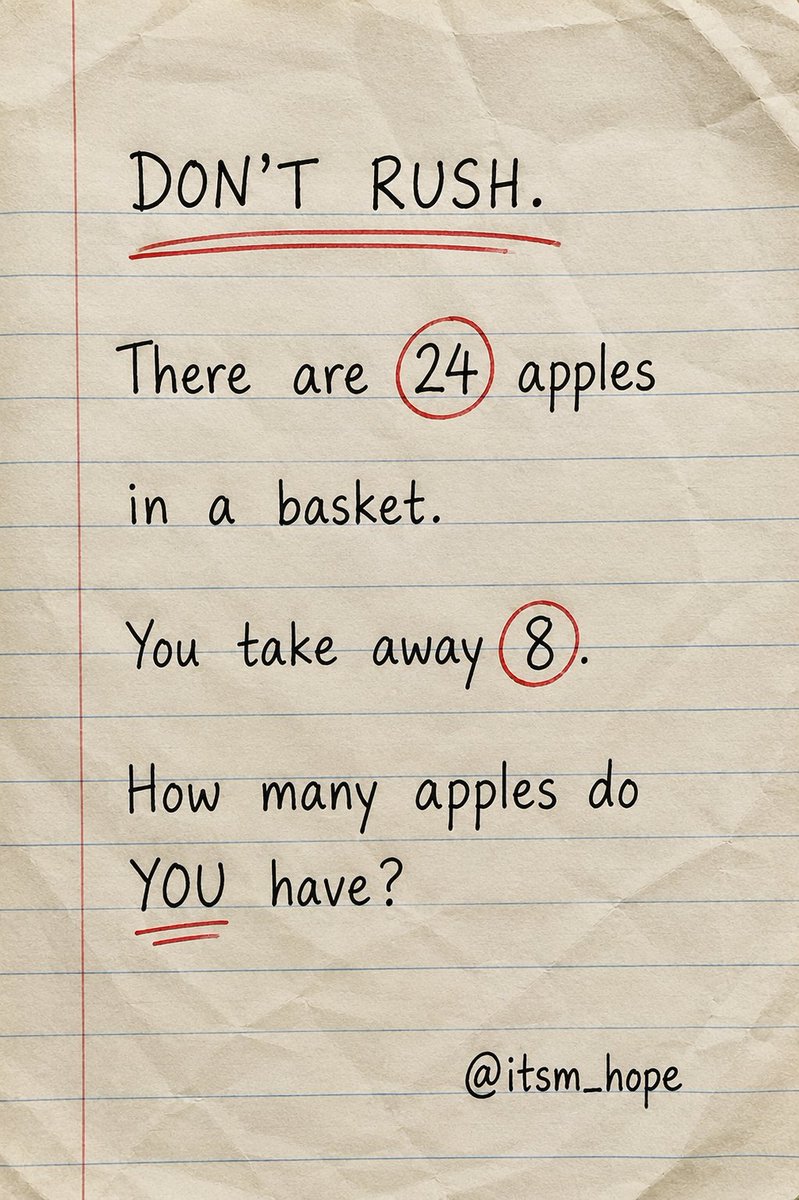 DON'T RUSH.
There are 24 apples
in a basket.
You take away 8.
How many apples do
YOU have?
@itsm_hope